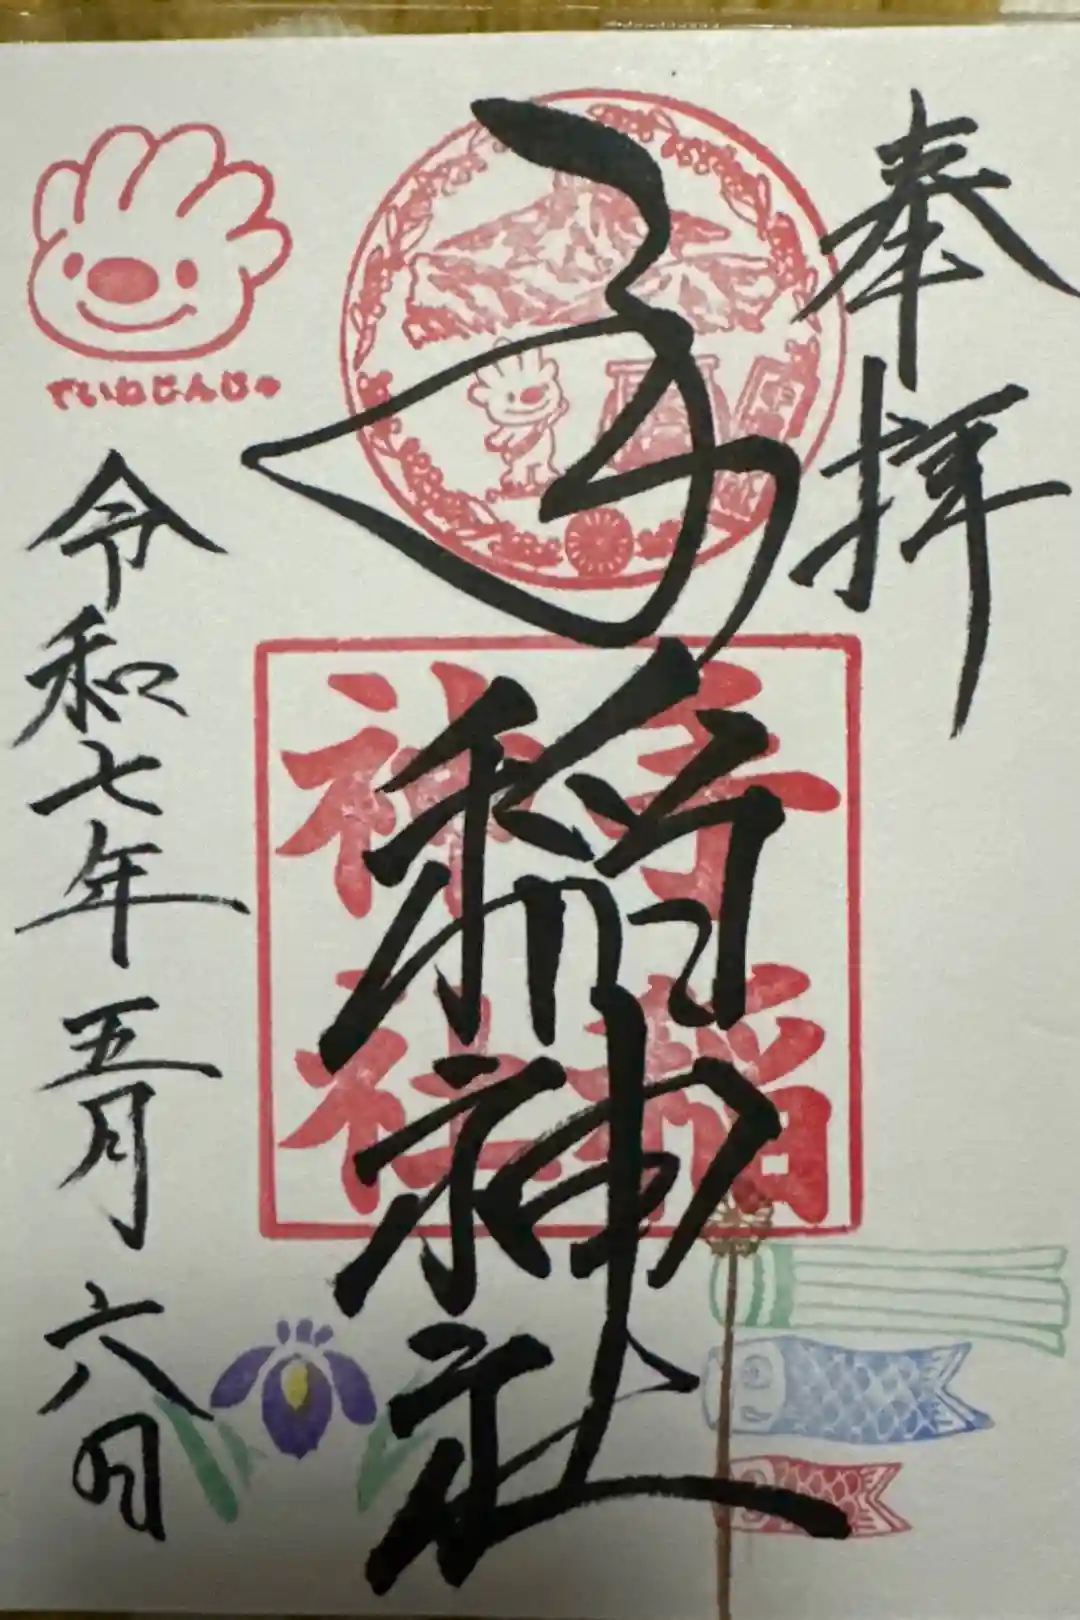 奉拝
手稲神社
手稲
神社
ていねじんじゃ
令和七年五月六日